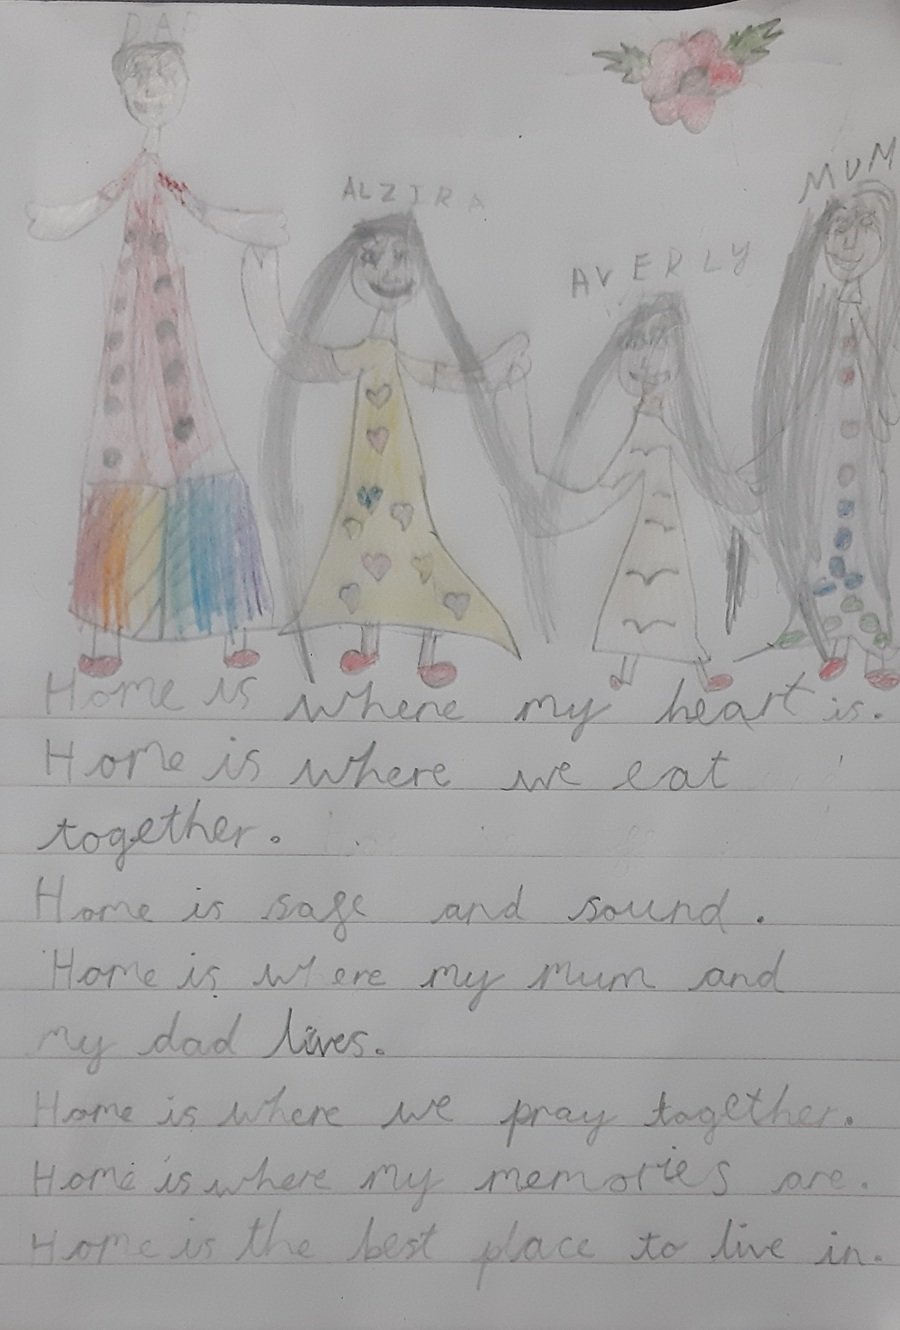 DAD
ALZIRA
AVERLY
MUM
Home is where my heart is.
Home is where we eat
together.
Home is safe and sound.
Home is where my mum and
my dad lives.
Home is where we pray together.
Home is where my memories are.
Home is the best place to live in.